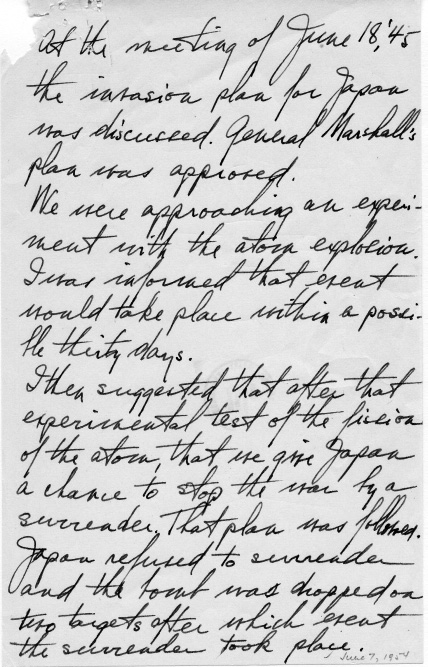 At the meeting of June 18,'45
the invasion plan for Japan
was discussed. General Marshall's
plan was approved.
We were approaching an experi-
ment with the atom explosion.
I was informed that event
would take place within a possi-
ble thirty days.
I then suggested that after that
experimental test of the fission
of the atom, that we give Japan
a chance to stop the war by a
surrender. That plan was followed.
Japan refused to surrender
and the bomb was dropped on
two targets after which event
the surrender took place.
June 7, 1954